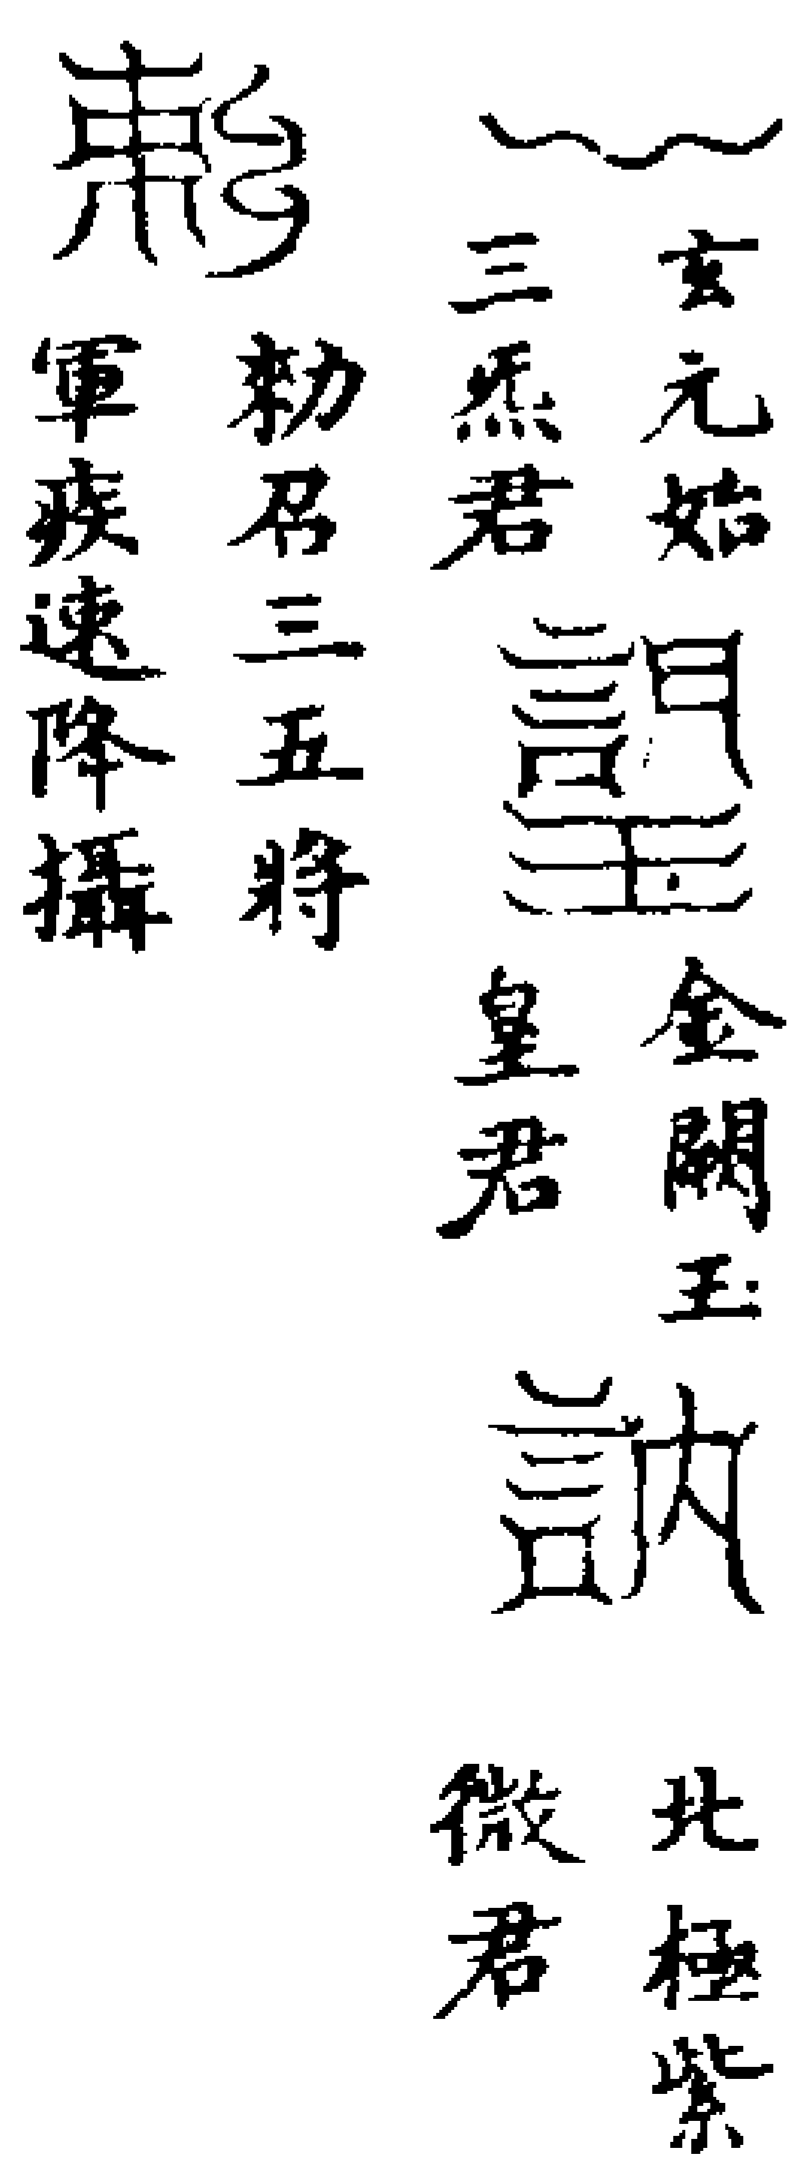 玄元始
三炁君
金闕玉
皇君
訥
北極紫
微君
勑召三五將
軍疾速降攝